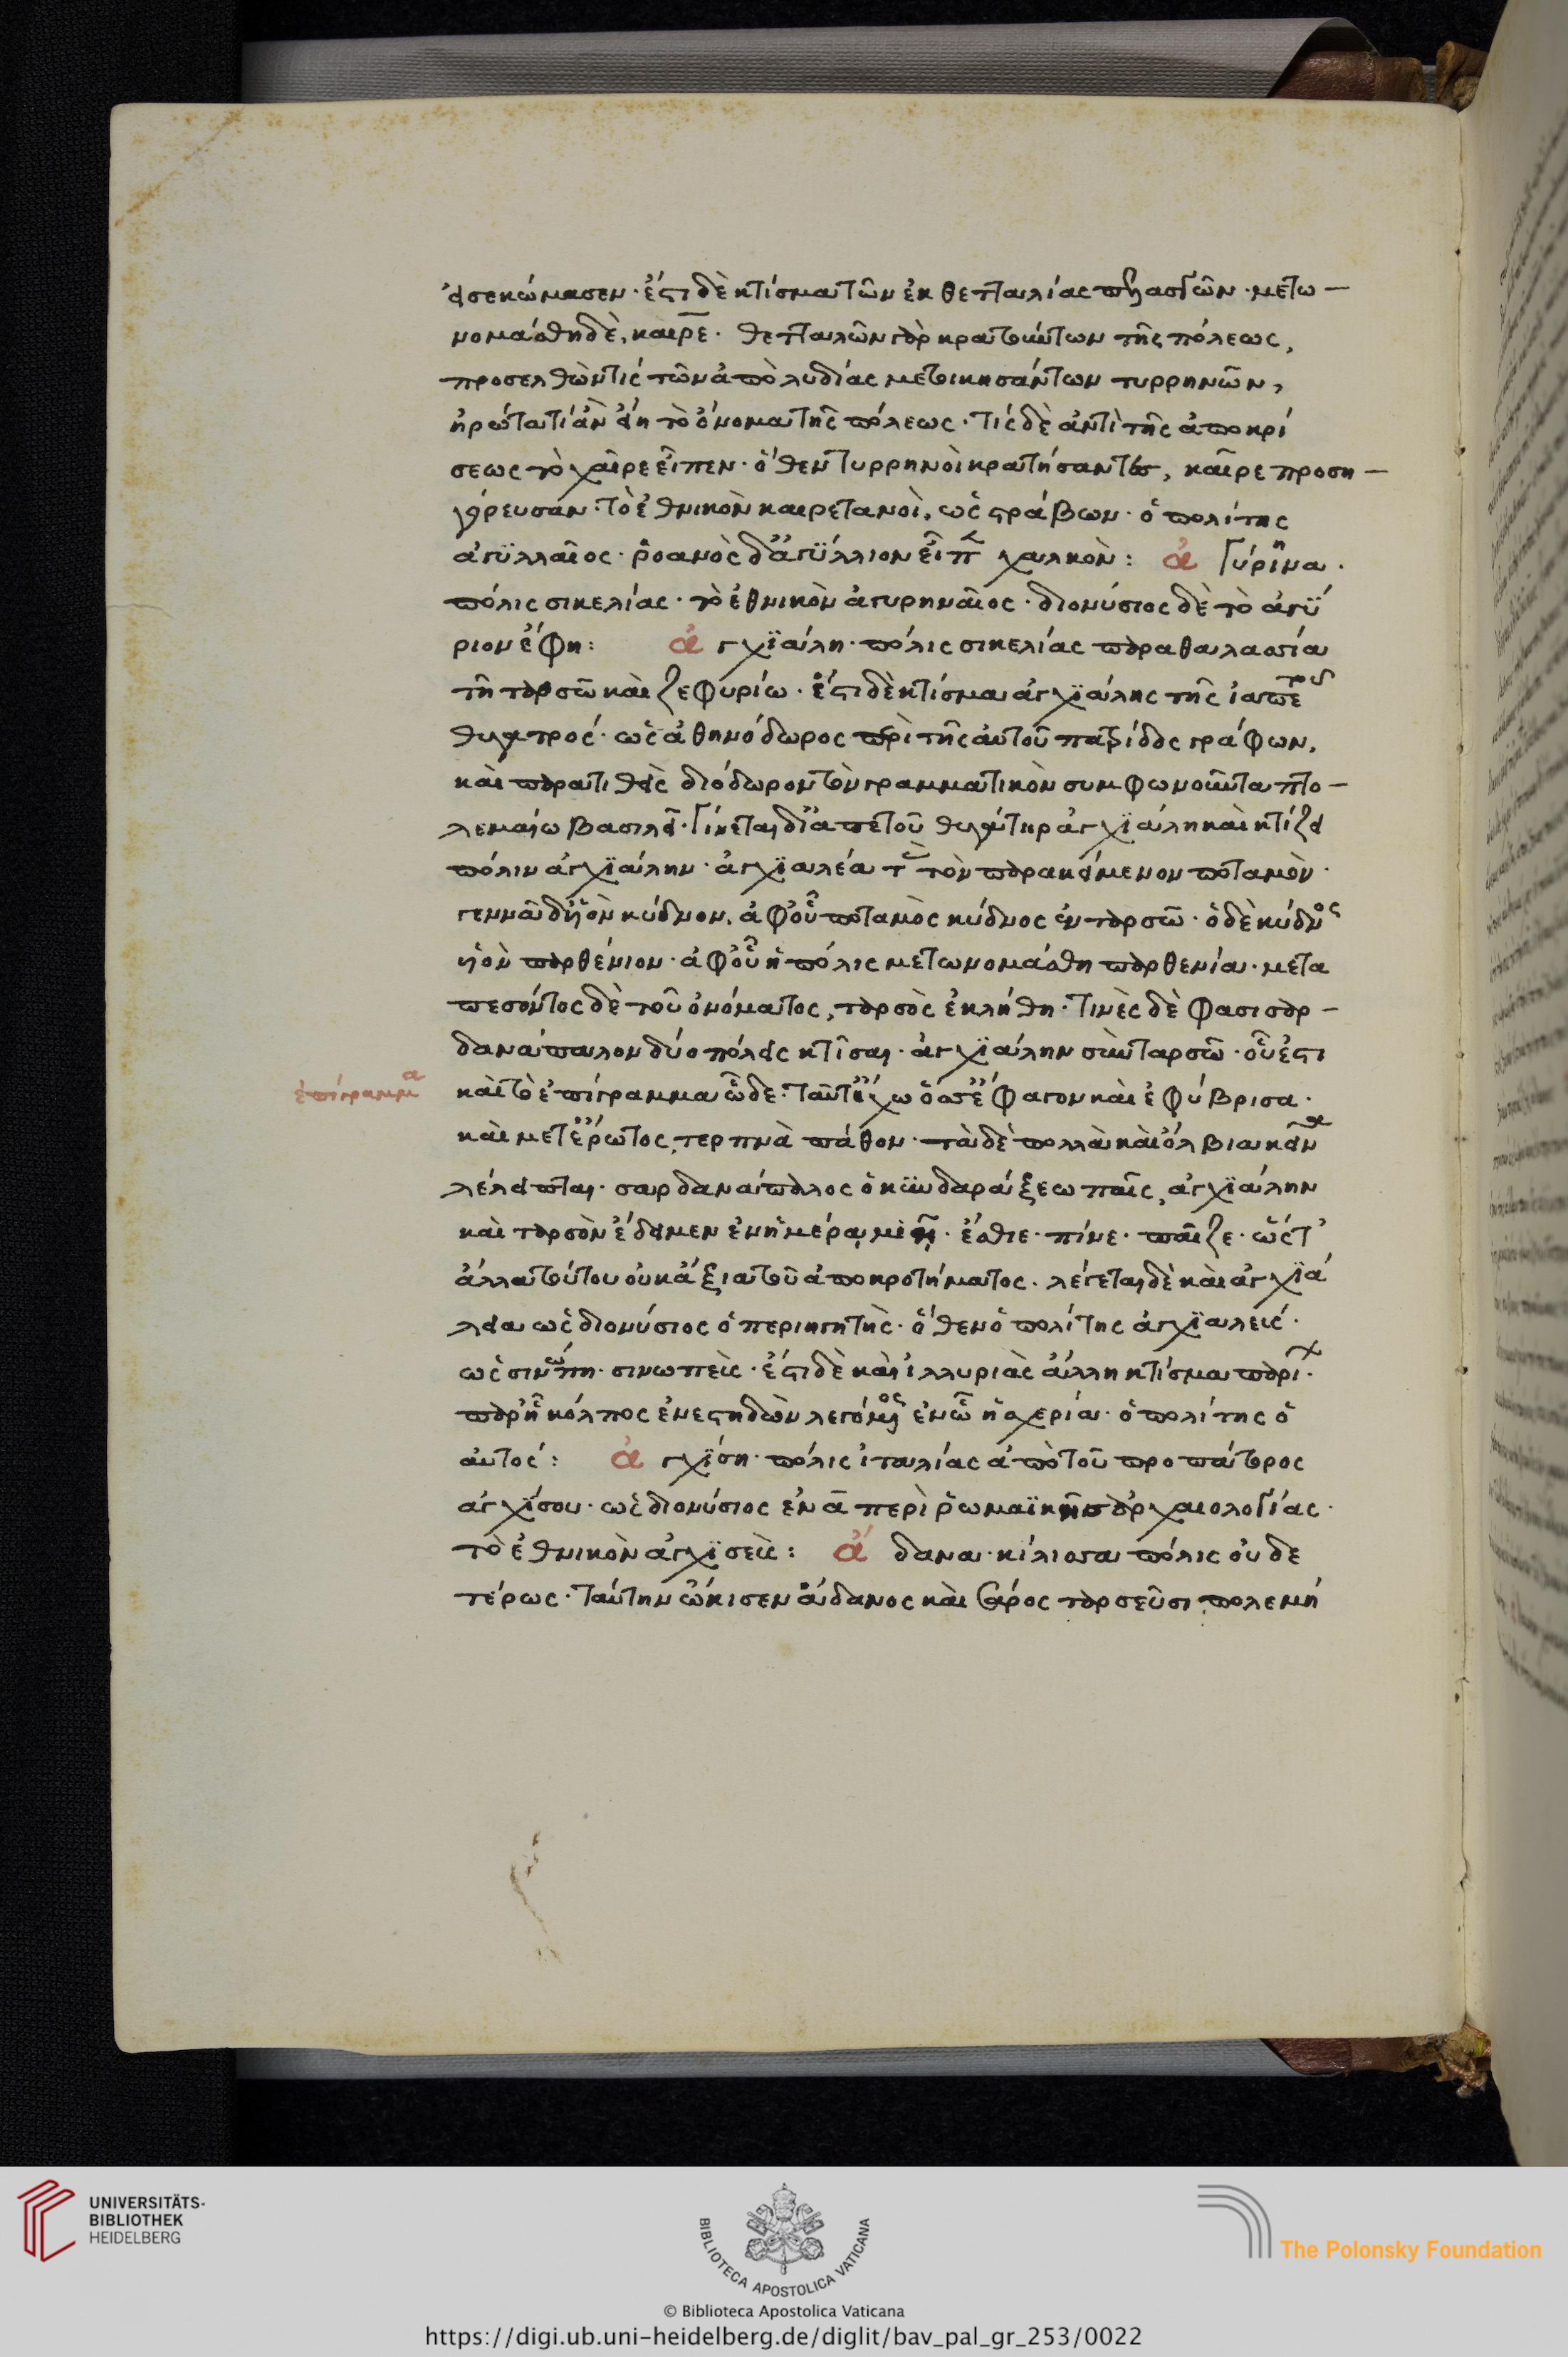 εισεκώμασεν· ἔστι δὲ κτίσμα τῶν ἐκ θετταλίας πελασγῶν· μετω-
νομάσθη δὲ, καιρε· θετταλῶν γὰρ κρατούντων τῆς πόλεως,
προσελθὼν τίς τῶν ἀπὸ λυδίας μετοικησάντων τυρρηνῶν,
ἠρώτα τί ἂν εἴη τὸ ὄνομα τῆς πόλεως· τίς δὲ ἀντὶ τῆς ἀποκρί
σεως τὸ χαῖρε εἶπεν· ὅθεν τυρρηνοὶ κρατήσαντες, καῖρε προση-
γόρευσαν· τὸ ἐθνικὸν καιρετανοὶ, ὡς στράβων· ὁ πολίτης
ἀγϋλλαῖος· ῥοανὸς δ' ἀγϋλλιον εἶπε χαλκὸν: ἀ Γύρινα·
πόλις σικελίας· τὸ ἐθνικὸν ἀγυρηναῖος· διονύσιος δὲ τὸ ἀγϋ
ριον ἔφη: ἀ γχϊάλη· πόλις σικελίας παραθαλασσία
τῆ ταρσῶ καὶ ζεφυρίω· ἔστι δὲ κτίσμα ἀγχϊάλης τῆς ἰαπετοῦ
θυγατρός· ὡς ἀθηνόδωρος περὶ τῆς αὐτοῦ πατρίδος γράφων,
καὶ παρατιθεὶς διόδωρον τὸν γραμματικὸν συμφωνοῦντα πτο-
λεμαίω βασιλεῖ· Γίνεται δ' ἰαπετοῦ θυγάτηρ ἀγχϊάλη καὶ κτίζει
πόλιν ἀγχϊάλην· ἀγχϊαλέα τὲ τὸν παρακείμενον ποταμὸν·
γεννᾶ δ' υἱὸν κύδνον, ἀφ' οὗ ποταμὸς κύδνος ἐν ταρσῶ· ὁ δὲ κύδνος
υἱὸν παρθένιον· ἀφ' οὗ ἡ πόλις μετωνομάσθη παρθενία· μετα
πεσόντος δὲ τοῦ ὀνόματος, ταρσὸς ἐκλήθη· τινὲς δὲ φασι σαρ-
δανάπαλον δύο πόλεις κτῖσαι· ἀγχϊάλην σὺν ταρσῶ· οὗ ἐστι
ἐπίγραμμα
καὶ τὸ ἐπίγραμμα ὧδε· ταῦτ' ἔχω ὅσσ' ἔφαγον καὶ ἐφύβρισα·
καὶ μετ' ἔρωτος, τερπνὰ πάθον· τὰ δὲ πολλὰ καὶ ὄλβια κεῖνα
λέλειπται· σαρδανάπαλος ὁ κϋνδαράξεω παῖς, ἀγχϊάλην
καὶ ταρσὸν ἔδειμεν ἐν ἡμέρα μιῆ· ἔσθιε· πίνε· παῖζε· ὥς τ'
ἄλλα τούτου οὐκ ἄξια τοῦ ἀποκροτήματος· λέγεται δὲ καὶ ἀγχϊά
λεια ὡς διονύσιος ὁ περιηγητὴς· ὅθεν ὁ πολίτης ἀγχϊαλεύς·
ὡς σινώπη· σινωπεὺς· ἔστι δὲ καὶ ἰλλυριὰς ἄλλη κτίσμα παρίων·
παρ' ἧ κόλπος ἐνεστηδὼν λεγόμενος ἐν ὧ ἡ σχερία· ὁ πολίτης ὁ
αὐτος: ἀ γχίση· πόλις ἰταλίας ἀπὸ τοῦ προπάτορος
ἀγχίσου· ὡς διονύσιος ἐν α περὶ ῥωμαϊκῆς ἀρχαιολογίας·
τὸ ἐθνικὸν ἀγχϊσεὺς: ἄ δανα· κίλισσα πόλις οὐδε
τέρως· ταύτην ὤκισεν ἄδανος καὶ σάρος ταρσεῦσι πολεμή
UNIVERSITÄTS-
BIBLIOTHEK
HEIDELBERG
BIBLIOTECA APOSTOLICA VATICANA
The Polonsky Foundation
© Biblioteca Apostolica Vaticana
https://digi.ub.uni-heidelberg.de/diglit/bav_pal_gr_253/0022